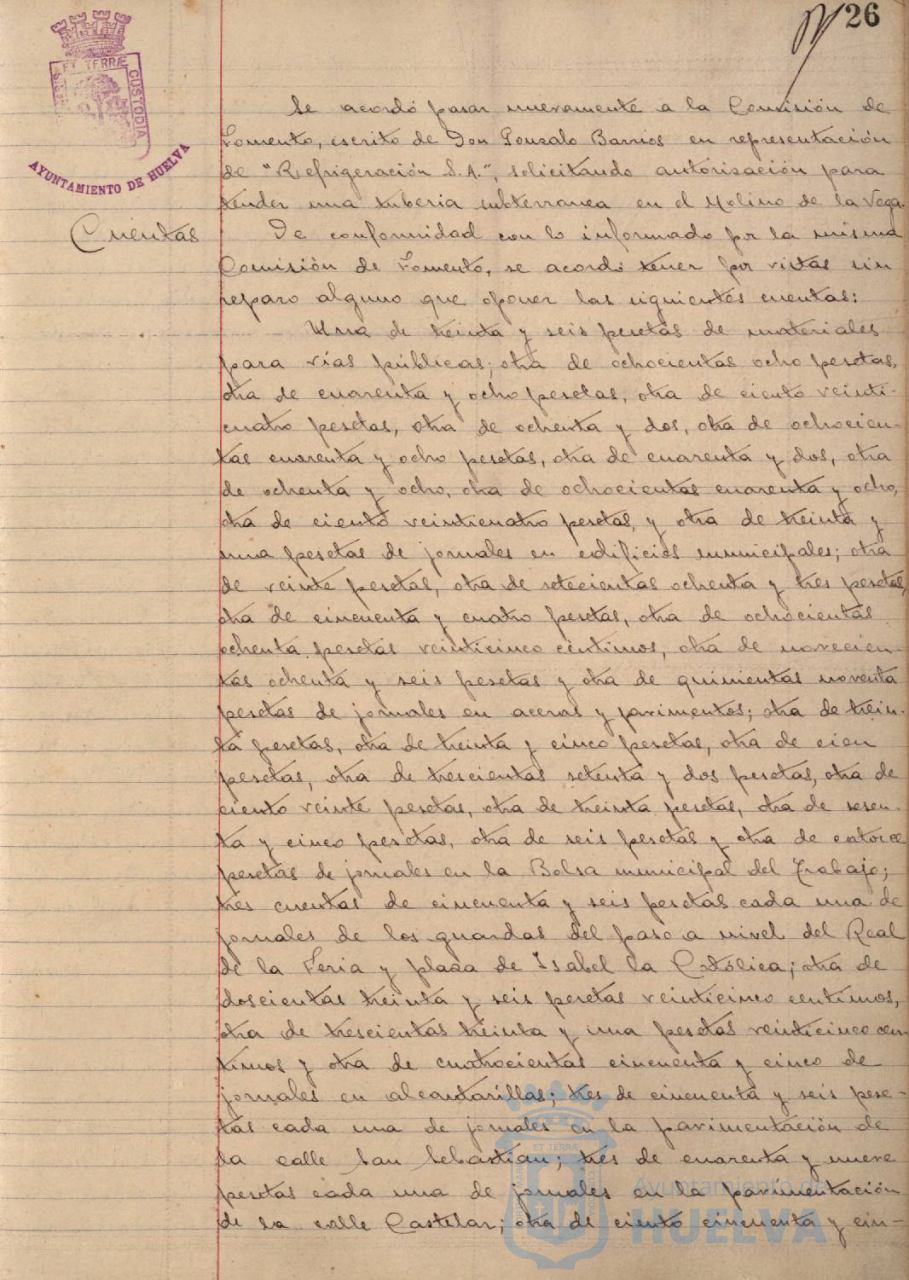 26
ET TERRÆ CUSTODIA
AYUNTAMIENTO DE HUELVA
Se acordó pasar nuevamente a la Comisión de
Fomento, escrito de Don Gonzalo Barrios en representación
de "Refrigeración S.A.", solicitando autorización para
tender una tuberia subterranea en el Molino de la Vega.
Cuentas
De conformidad con lo informado por la misma
Comisión de Fomento, se acordó tener por vistas sin
reparo alguno que oponer las siguientes cuentas:
Una de treinta y seis pesetas de materiales
para vías públicas; otra de ochocientas ocho pesetas,
otra de cuarenta y ocho pesetas, otra de ciento veinti-
cuatro pesetas, otra de ochenta y dos, otra de ochocien-
tas cuarenta y ocho pesetas, otra de cuarenta y dos, otra
de ochenta y ocho, otra de ochocientas cuarenta y ocho,
otra de ciento veinticuatro pesetas, y otra de treinta y
una pesetas de jornales en edificios municipales; otra
de veinte pesetas, otra de setecientas ochenta y tres pesetas,
otra de cincuenta y cuatro pesetas, otra de ochocientas
ochenta pesetas veinticinco centimos, otra de novecien-
tas ochenta y seis pesetas y otra de quinientas noventa
pesetas de jornales en aceras y pavimentos; otra de trein-
ta pesetas, otra de treinta y cinco pesetas, otra de cien
pesetas, otra de trescientas setenta y dos pesetas, otra de
ciento veinte pesetas, otra de treinta pesetas, otra de sesen-
ta y cinco pesetas, otra de seis pesetas y otra de catorce
pesetas de jornales en la Bolsa municipal del Trabajo;
tres cuentas de cincuenta y seis pesetas cada una de
jornales de los guardas del paso a nivel del Real
de la Feria y plaza de Isabel la Católica; otra de
doscientas treinta y seis pesetas veinticinco centimos,
otra de trescientas treinta y una pesetas veinticinco cen-
timos y otra de cuatrocientas cincuenta y cinco de
jornales en alcantarillas; tres de cincuenta y seis pese-
tas cada una de jornales en la pavimentación de
la calle San Sebastian; tres de cuarenta y nueve
pesetas cada una de jornales en la pavimentación
de la calle Castelar; otra de ciento cincuenta y cin-
Ayuntamiento de
HUELVA